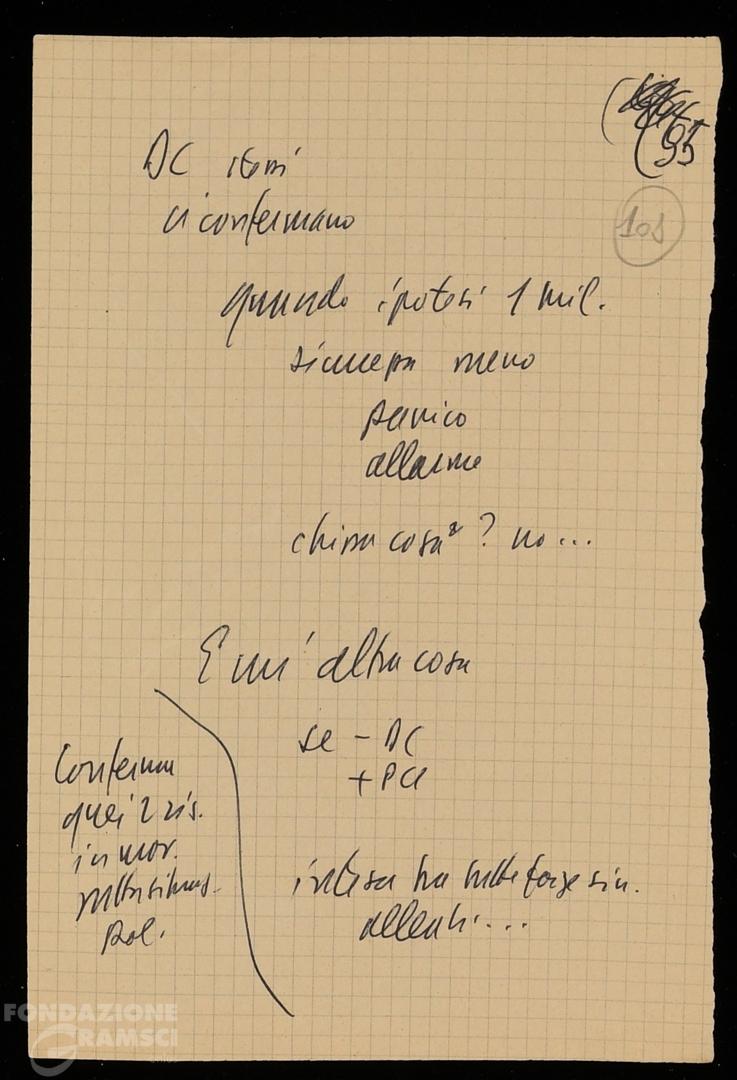 (95
108
DC stessi
ci confermano
quando ipotesi 1 mil.
sicurezza meno
panico
allarme
chissa cosa? no...
E un'altra cosa
se - DC
+ PCI
Conferma
quei 2 ris.
in mov.
pol.
intesa tra tutte forze sin.
alleati...
FONDAZIONE
GRAMSCI